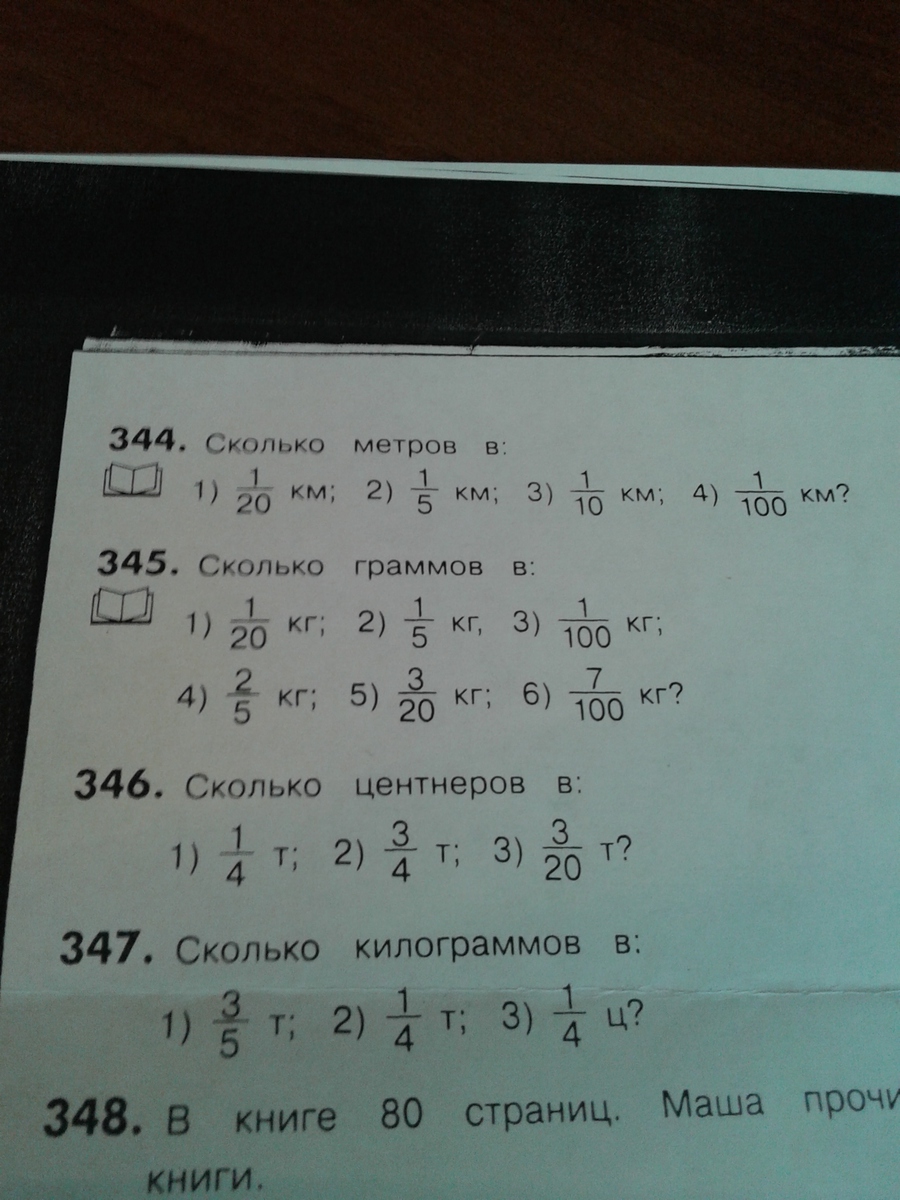 344. Сколько метров в:
1) 1/20 км; 2) 1/5 км; 3) 1/10 км; 4) 1/100 км?
345. Сколько граммов в:
1) 1/20 кг; 2) 1/5 кг, 3) 1/100 кг;
4) 2/5 кг; 5) 3/20 кг; 6) 7/100 кг?
346. Сколько центнеров в:
1) 1/4 т; 2) 3/4 т; 3) 3/20 т?
347. Сколько килограммов в:
1) 3/5 т; 2) 1/4 т; 3) 1/4 ц?
348. В книге 80 страниц. Маша прочи
книги.